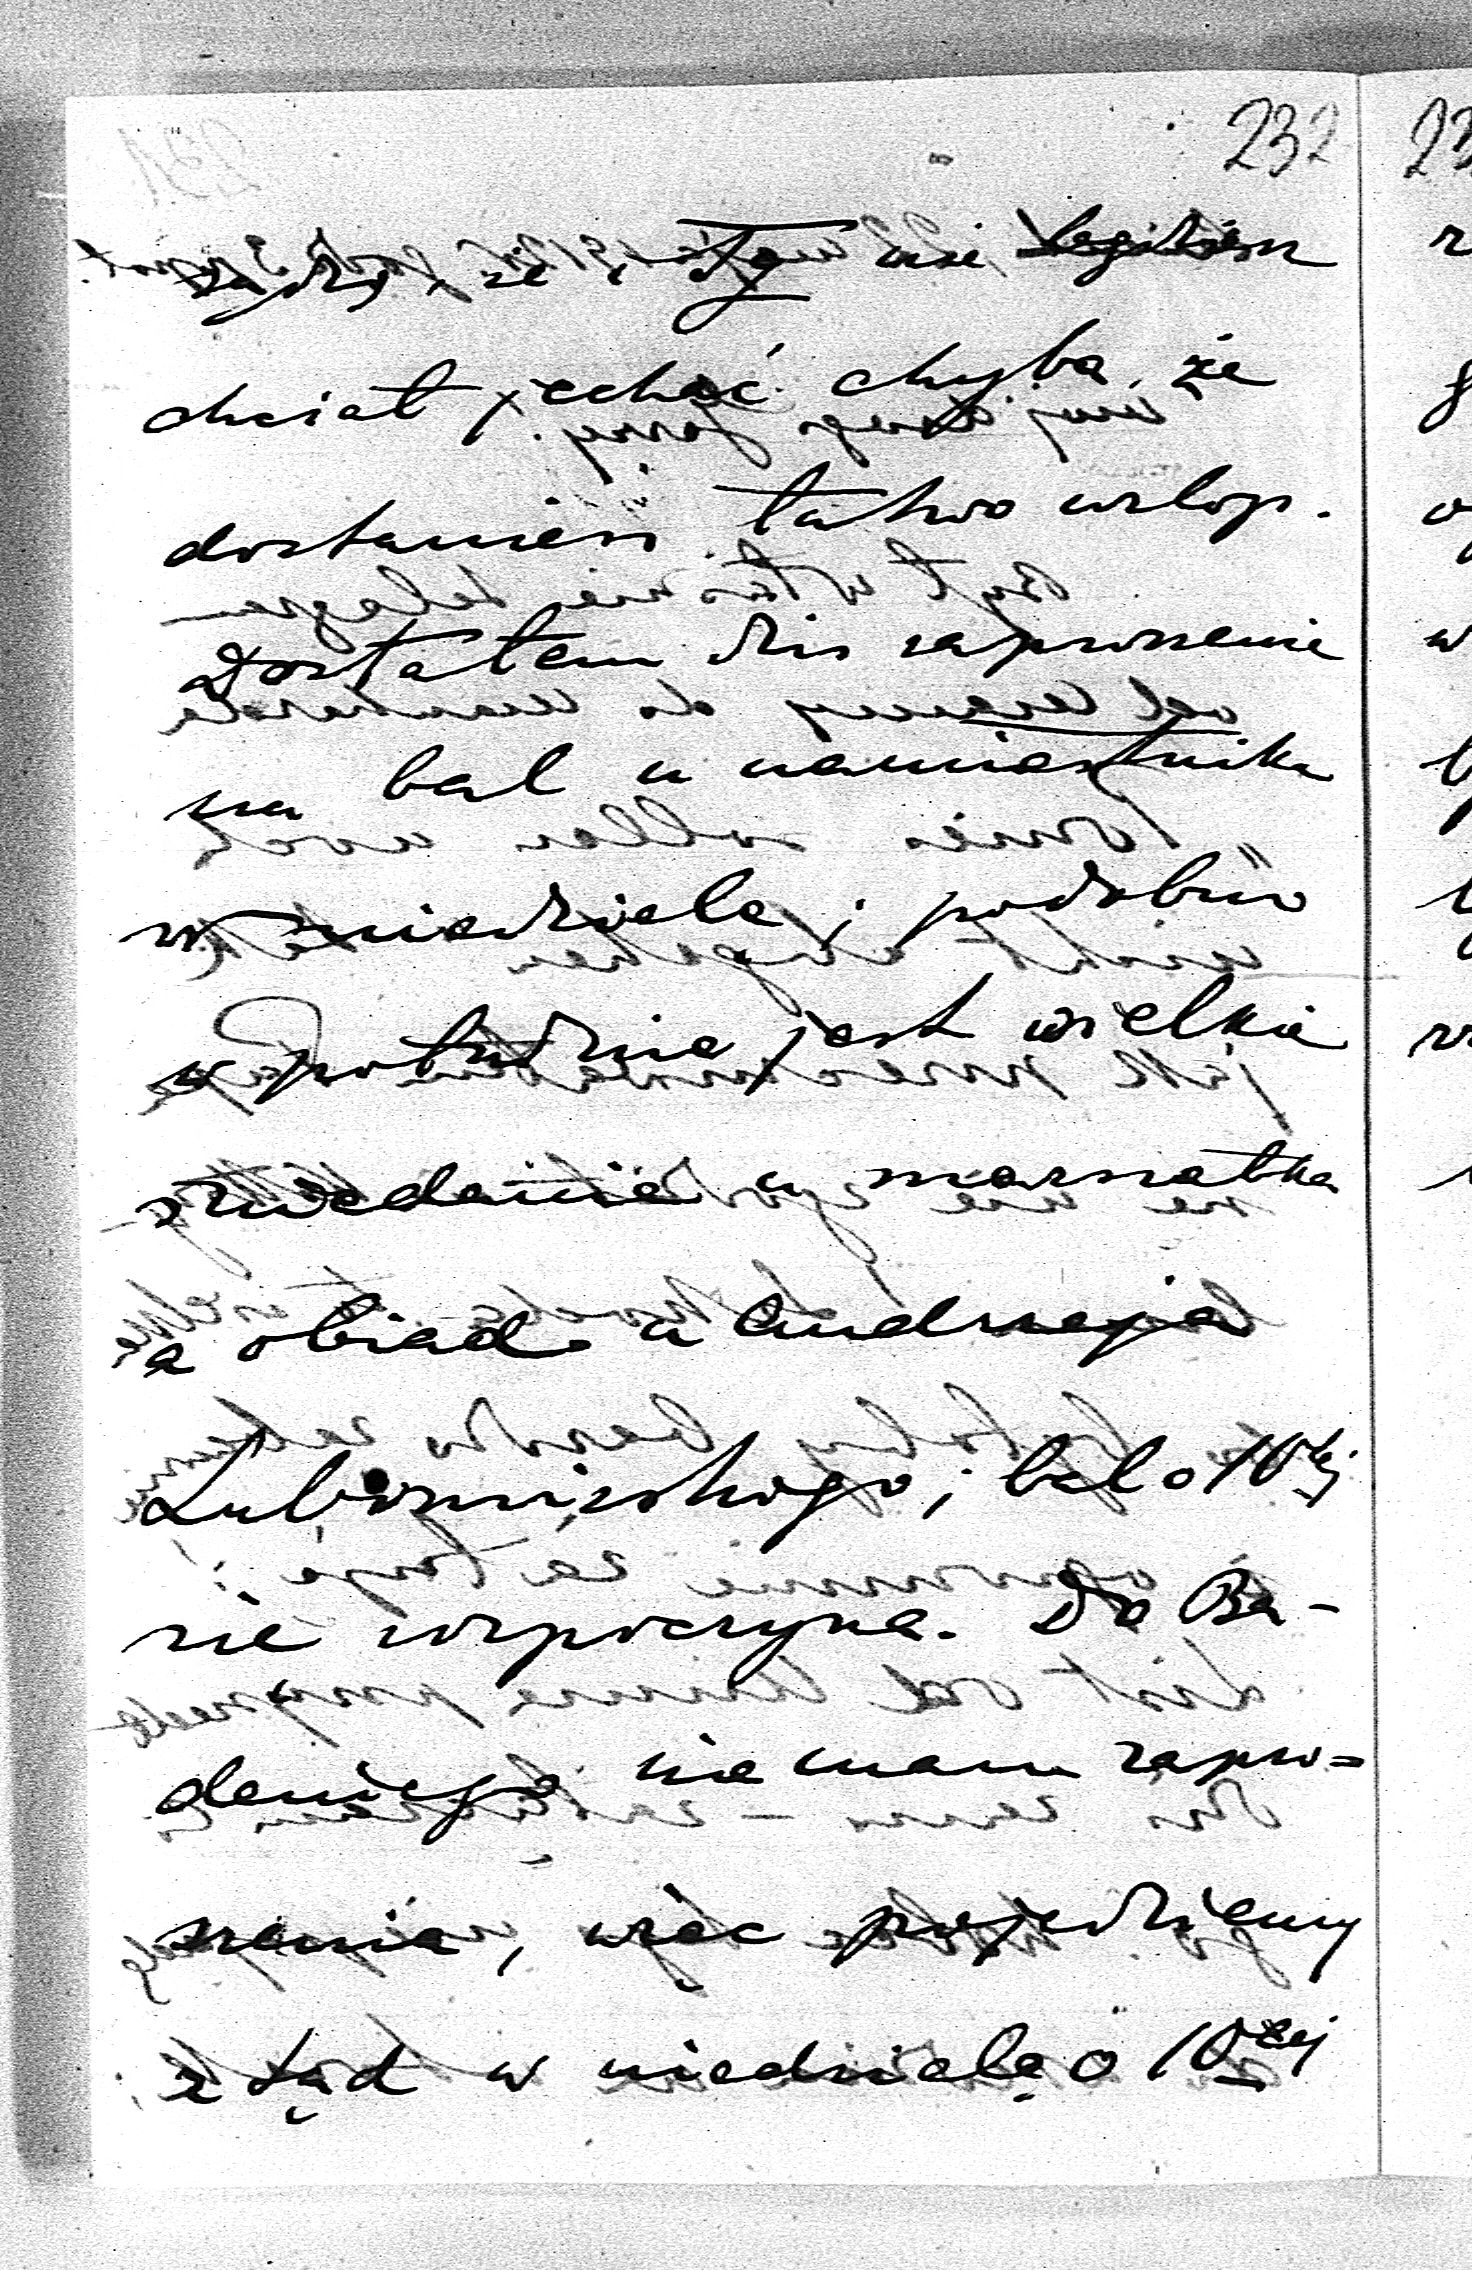 232
sądzę, że i Ty nie będziesz
chciał jechać chyba, że
dostaniesz łatwo urlop.
Dostałem dziś zaproszenie
na bal u namiestnika
w niedzielę; podobno
w południe jest wielkie
śniadanie u marszałka
a obiad u Andrzeja
Lubomirskiego; bal o 10tej
się rozpoczyna. Do Ba-
deniego nie mam zapro=
szenia, więc pojedziemy
z tąd w niedzielę o 10tej